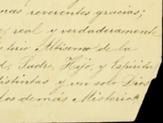 mas reverentes gracias;
y real y verdaderamente
Altisimo de la
d, Padre, Hijo, y Espiritu
distintas y un solo Dios
los demás Misterios